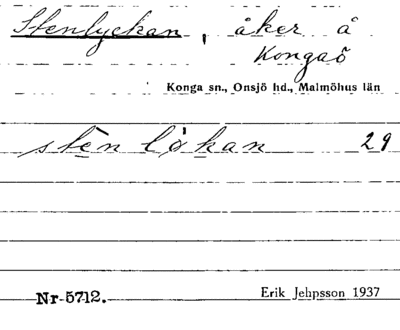 Stenlyckan, åker å
Kongaö
Konga sn., Onsjö hd., Malmöhus län
stèn lö̀kan 29
Nr 5712. Erik Jehpsson 1937